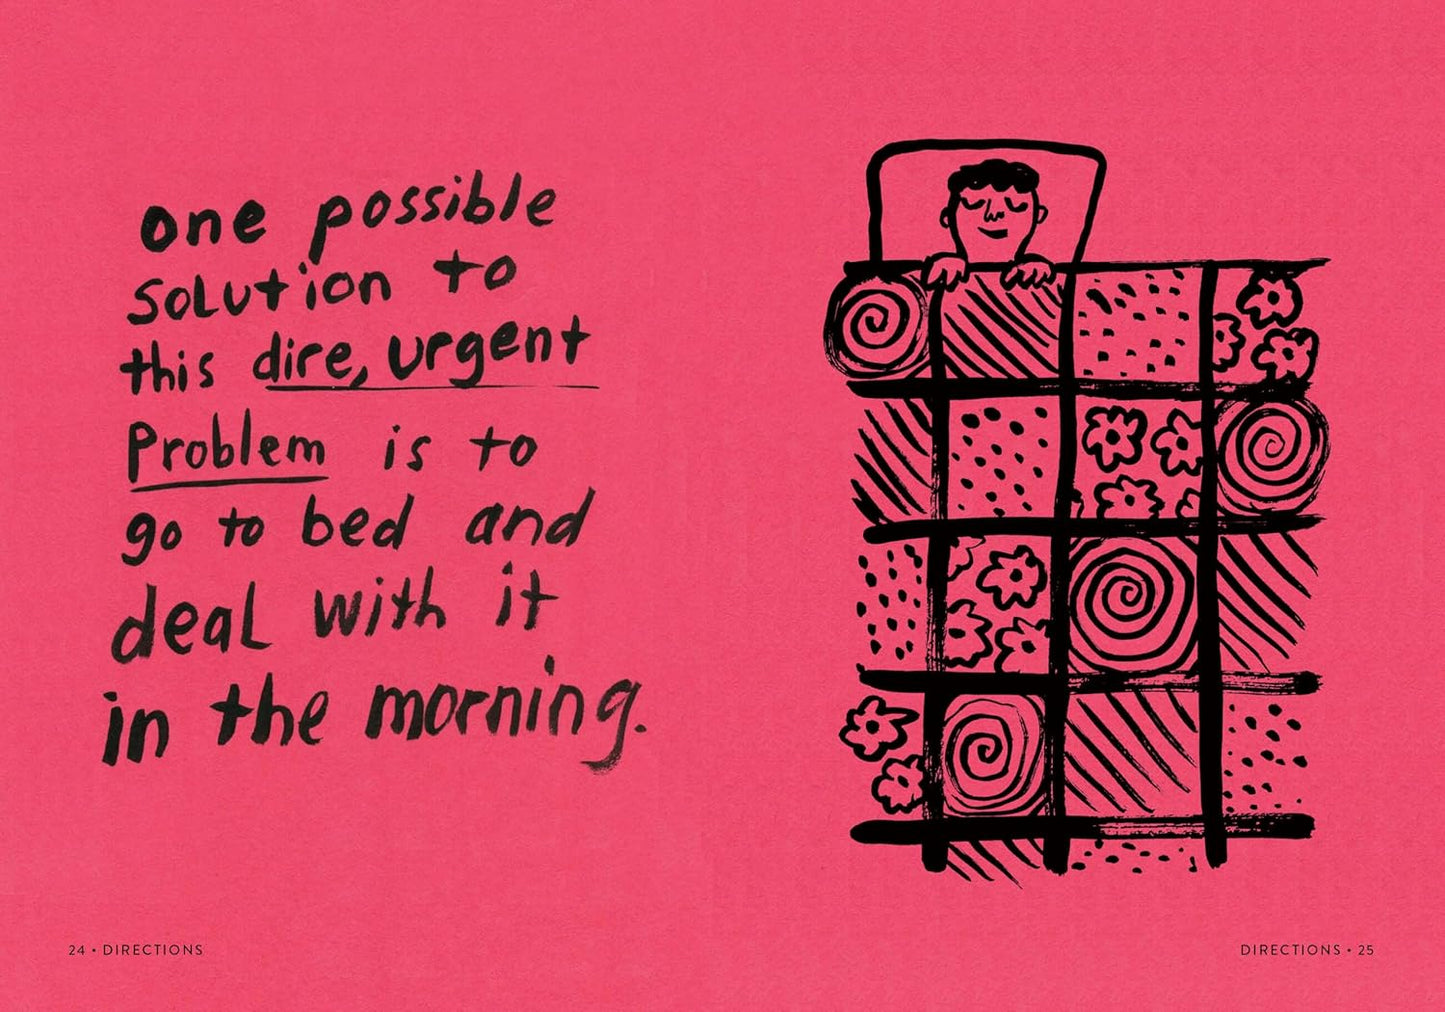 one possible
solution to
this dire, urgent
Problem is to
go to bed and
deal with it
in the morning.
24 • DIRECTIONS
DIRECTIONS • 25